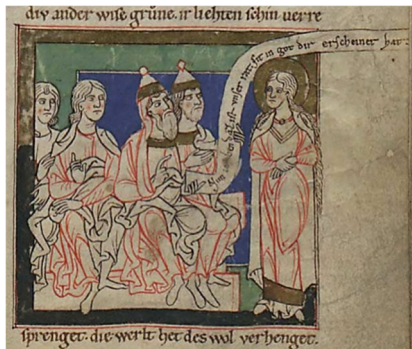 div ander wise grůne. ir liehten schin verre
ist unser rat sit in got dir erscheinet hat.
sprenget. die werlt het des wol verhenget.